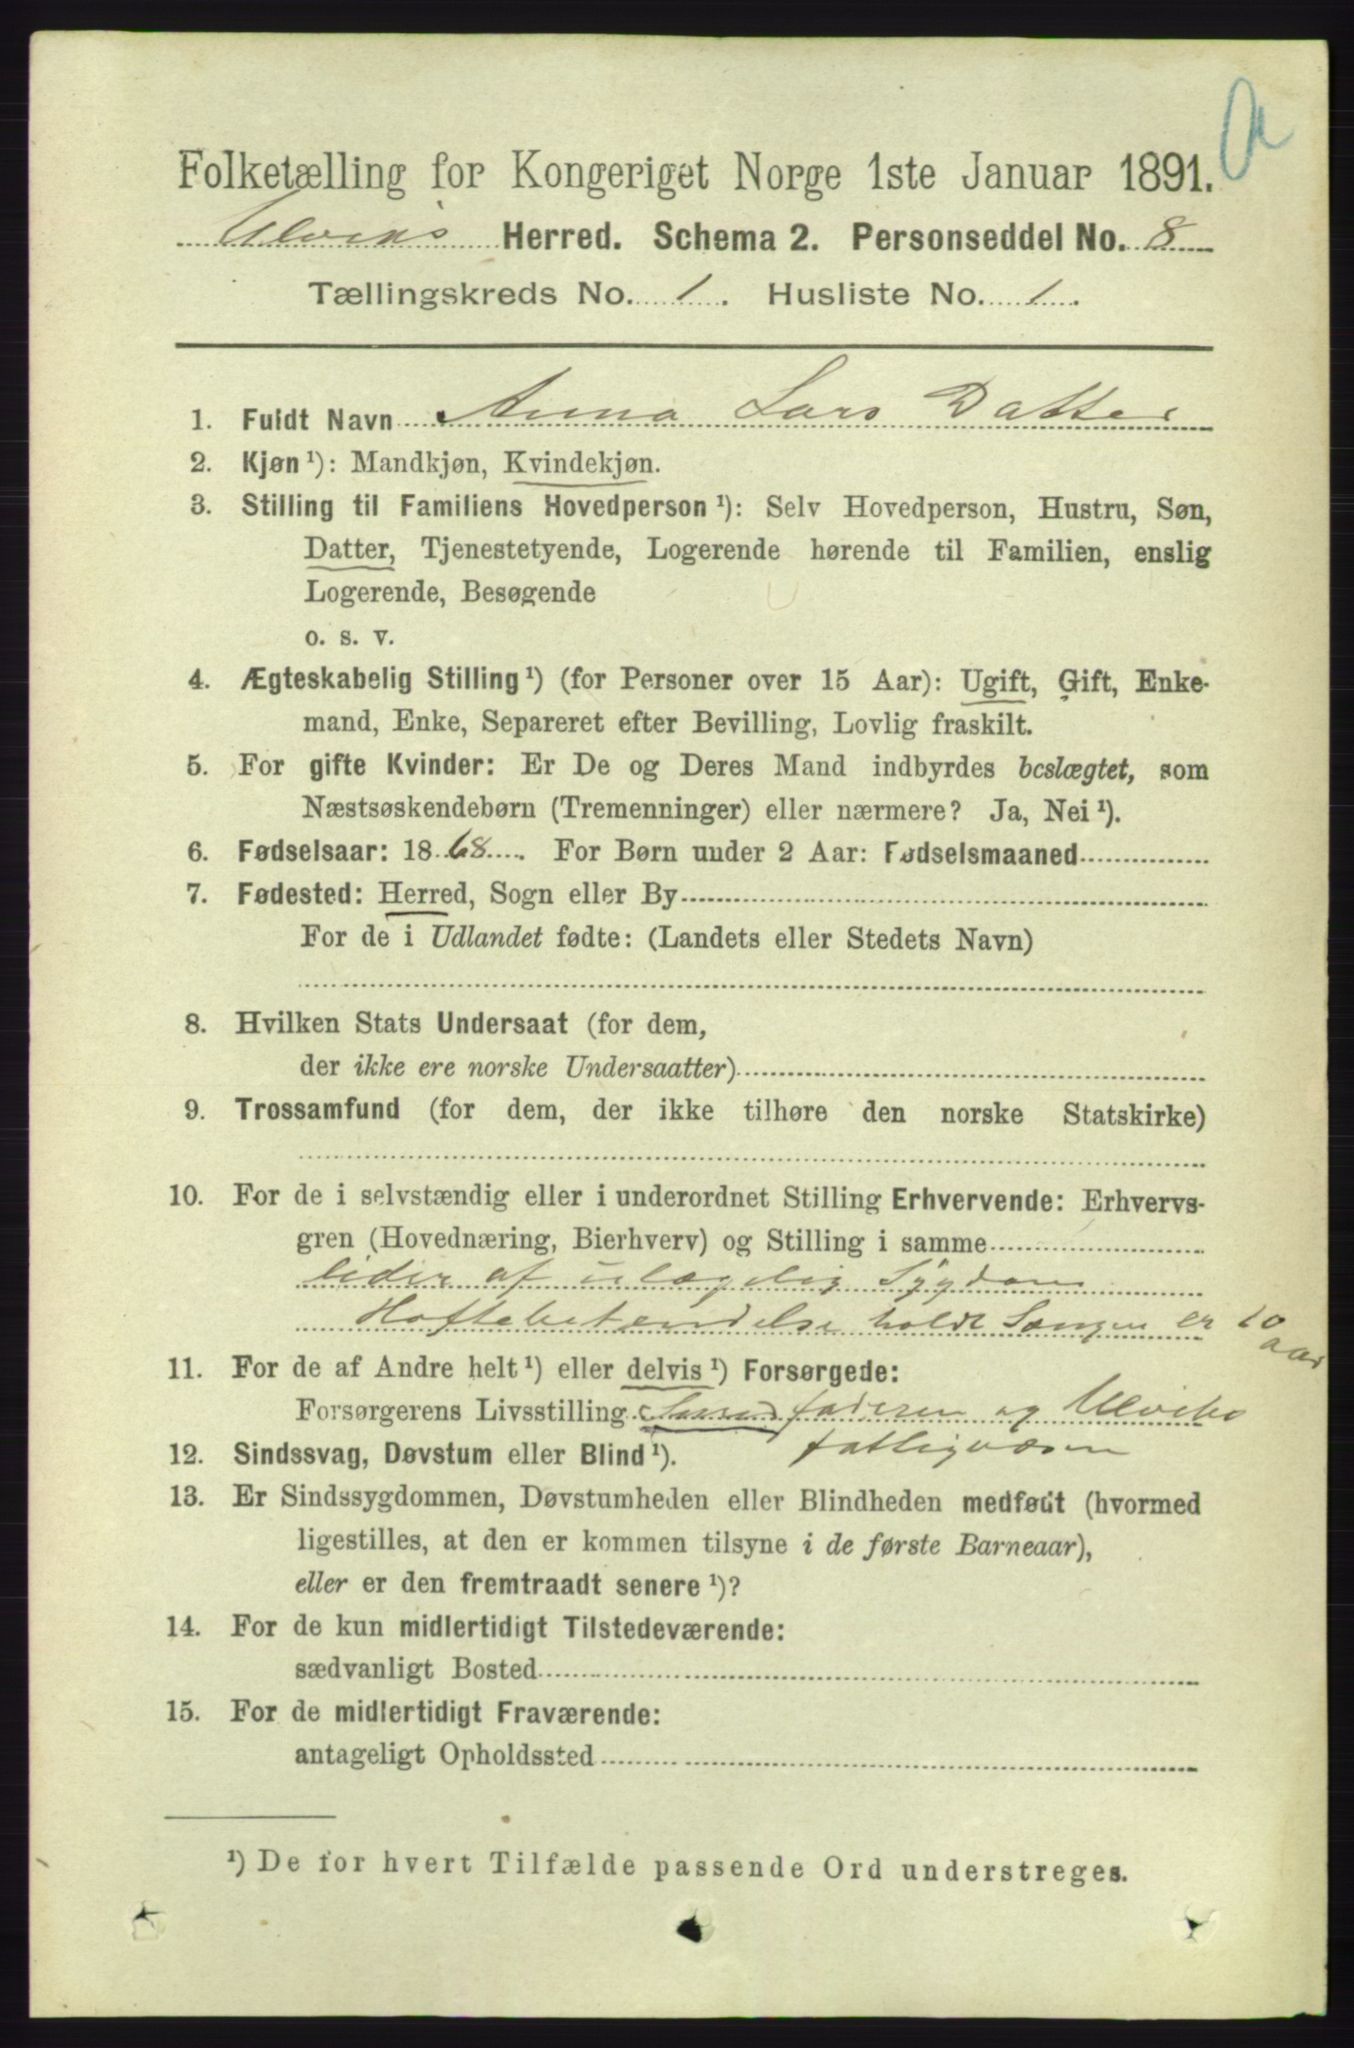 Folketælling for Kongeriget Norge 1ste Januar 1891.
Ulviks Herred. Schema 2. Personseddel No. 8
Tællingskreds No. 1. Husliste No. 1.
1. Fuldt Navn Anna Lars Datter
2. Kjøn ¹): Mandkjøn, Kvindekjøn.
3. Stilling til Familiens Hovedperson ¹): Selv Hovedperson, Hustru, Søn,
Datter, Tjenestetyende, Logerende hørende til Familien, enslig
Logerende, Besøgende
o. s. v.
4. Ægteskabelig Stilling ¹) (for Personer over 15 Aar): Ugift, Gift, Enke-
mand, Enke, Separeret efter Bevilling, Lovlig fraskilt.
5. For gifte Kvinder: Er De og Deres Mand indbyrdes beslægtet, som
Næstsøskendebørn (Tremenninger) eller nærmere? Ja, Nei ¹).
6. Fødselsaar: 1868. For Børn under 2 Aar: Fødselsmaaned
7. Fødested: Herred, Sogn eller By
For de i Udlandet fødte: (Landets eller Stedets Navn)
8. Hvilken Stats Undersaat (for dem,
der ikke ere norske Undersaatter)
9. Trossamfund (for dem, der ikke tilhøre den norske Statskirke)
10. For de i selvstændig eller i underordnet Stilling Erhvervende: Erhvervs-
gren (Hovednæring, Bierhverv) og Stilling i samme
lider af ulægelig Sygdom
Hoftebetendelse holdt Sengen er 10
aar
11. For de af Andre helt ¹) eller delvis ¹) Forsørgede:
Forsørgerens Livsstilling faderen og Ulviks
fattigvæsen
12. Sindssvag, Døvstum eller Blind ¹).
13. Er Sindssygdommen, Døvstumheden eller Blindheden medfødt (hvormed
ligestilles, at den er kommen tilsyne i de første Barneaar),
eller er den fremtraadt senere ¹)?
14. For de kun midlertidigt Tilstedeværende:
sædvanligt Bosted
15. For de midlertidigt Fraværende:
antageligt Opholdssted
¹) De for hvert Tilfælde passende Ord understreges.